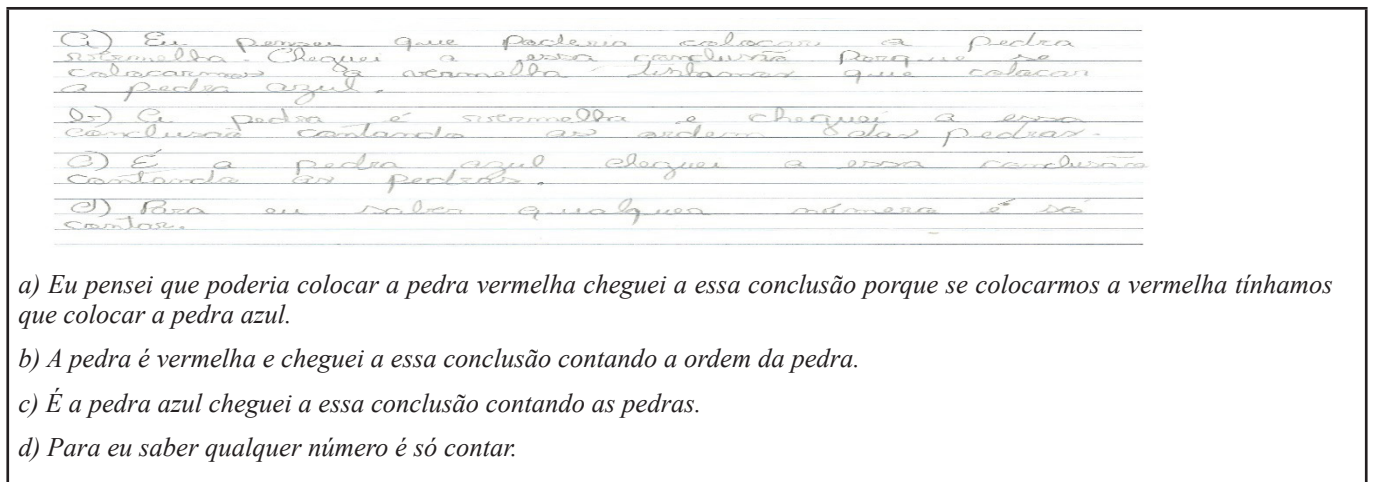 a) Eu pensei que poderia colocar a pedra
vermelha. Cheguei a essa conclusão porque se
colocarmos a vermelha tinhamos que colocar
a pedra azul.
b) A pedra é vermelha e cheguei a essa
conclusão contando as ordem das pedras.
c) É a pedra azul cheguei a essa conclusão
contando as pedras.
d) Para eu saber qualquer número é só
contar.
a) Eu pensei que poderia colocar a pedra vermelha cheguei a essa conclusão porque se colocarmos a vermelha tínhamos
que colocar a pedra azul.
b) A pedra é vermelha e cheguei a essa conclusão contando a ordem da pedra.
c) É a pedra azul cheguei a essa conclusão contando as pedras.
d) Para eu saber qualquer número é só contar.